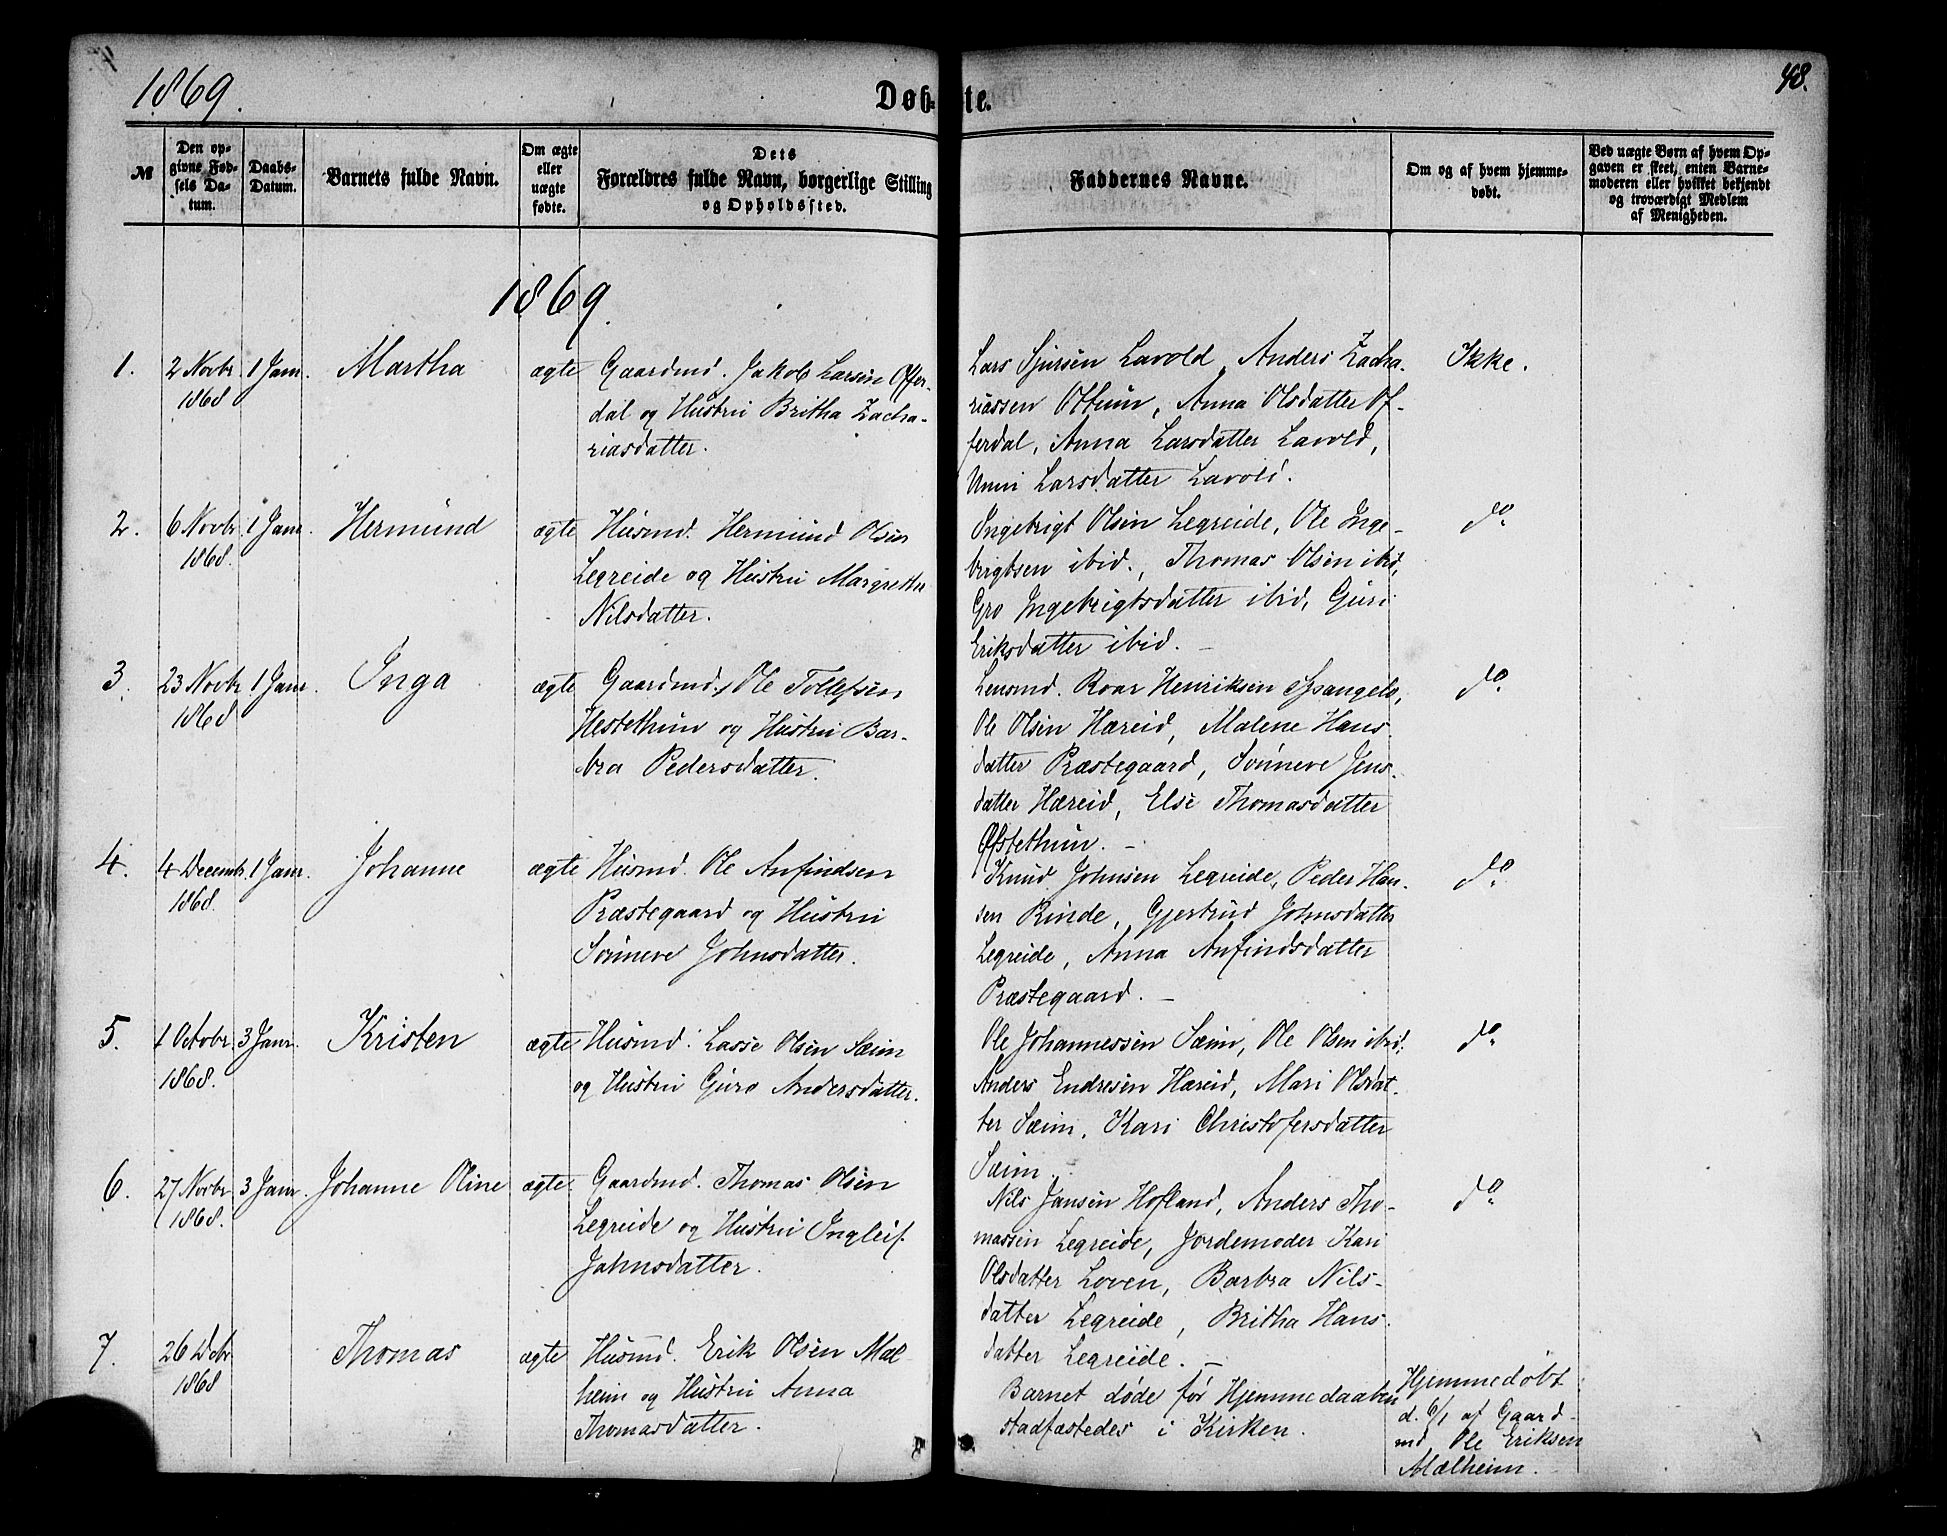 1869.
Døb-
te.
48.
№
Den op-
givne Fød-
sels Da-
tum.
Daabs-
Datum.
Barnets fulde Navn.
Om ægte
eller
uægte
fødte.
Dets
Forældres fulde Navn, borgerlige Stilling
og Opholdssted.
Faddernes Navne.
Om og af hvem hjemme-
døbt.
Ved uægte Børn af hvem Op-
gaven er skeet, enten Barne-
moderen eller hvilket bekjendt
og troværdigt Medlem
af Menigheden.
1869.
1.
2 Novbr
1868
1 Janr.
Martha
ægte
Gaardmd. Jakob Larsen Offer-
dal og Hustru Britha Zacha-
riasdatter.
Lars Sjursen Lavold, Anders Zacha-
riassen Ottum, Anna Olsdatter Of-
ferdal, Anna Larsdatter Lavold,
Unni Larsdatter Lavold.
Ikke.
2.
6 Novbr
1868.
1 Janr.
Hermund
ægte
Husmd. Hermund Olsen
Legreide og Hustru Margretha
Nilsdatter.
Ingebrigt Olsen Legreide, Ole Inge-
brigtsen ibid., Thomas Olsen ibid,
Gro Ingebrigtsdatter ibid, Guri
Eriksdatter ibid. -
do.
3.
23 Novbr
1868
1 Janr.
Inga
ægte
Gaardmd. Ole Tollefsen
Hestethun og Hustru Bar-
bra Pedersdatter.
Lensmd. Roar Henriksen Spangelo,
Ole Olsen Hæreid, Malene Hans-
datter Præstegaard, Sønneve Jens-
datter Hæreid, Else Thomasdatter
Østethun. -
do.
4.
4 Decembr
1868.
1 Janr.
Johanne
ægte
Husmd. Ole Anfindsen
Præstegaard og Hustru
Sønneve Johnsdatter.
Knud Johnsen Legreide, Peder Han-
sen Rinde, Gjertrud Johnsdatter
Legreide, Anna Anfindsdatter
Præstegaard. -
do.
5.
1 Octobr.
1868.
3 Janr.
Kristen
ægte
Husmd. Lasse Olsen Sæim
og Hustru Guro Andersdatter.
Ole Johannessen Sæim, Ole Olsen ibid.
Anders Endresen Hæreid, Mari Olsdat-
ter Sæim, Kari Christofersdatter
Sæim.
do.
6.
27 Novbr
1868.
3 Janr.
Johanne Oline
ægte.
Gaardmd. Thomas Olsen
Legreide og Hustru Ingleif
Johnsdatter.
Nils Jansen Hofland, Anders Tho-
massen Legreide, Jordemoder Kari
Olsdatter Loven, Barbra Nils-
datter Legreide, Britha Hans-
datter Legreide. -
do.
7.
26 Debr
1868
Thomas
ægte
Husmd. Erik Olsen Mæl-
heim og Hustru Anna
Thomasdatter.
Barnet døde før Hjemmedaaben
stadfæstedes i Kirken.
Hjemmedøbt
d. 6/1 af Gaard-
md Ole Eriksen
Mælheim.